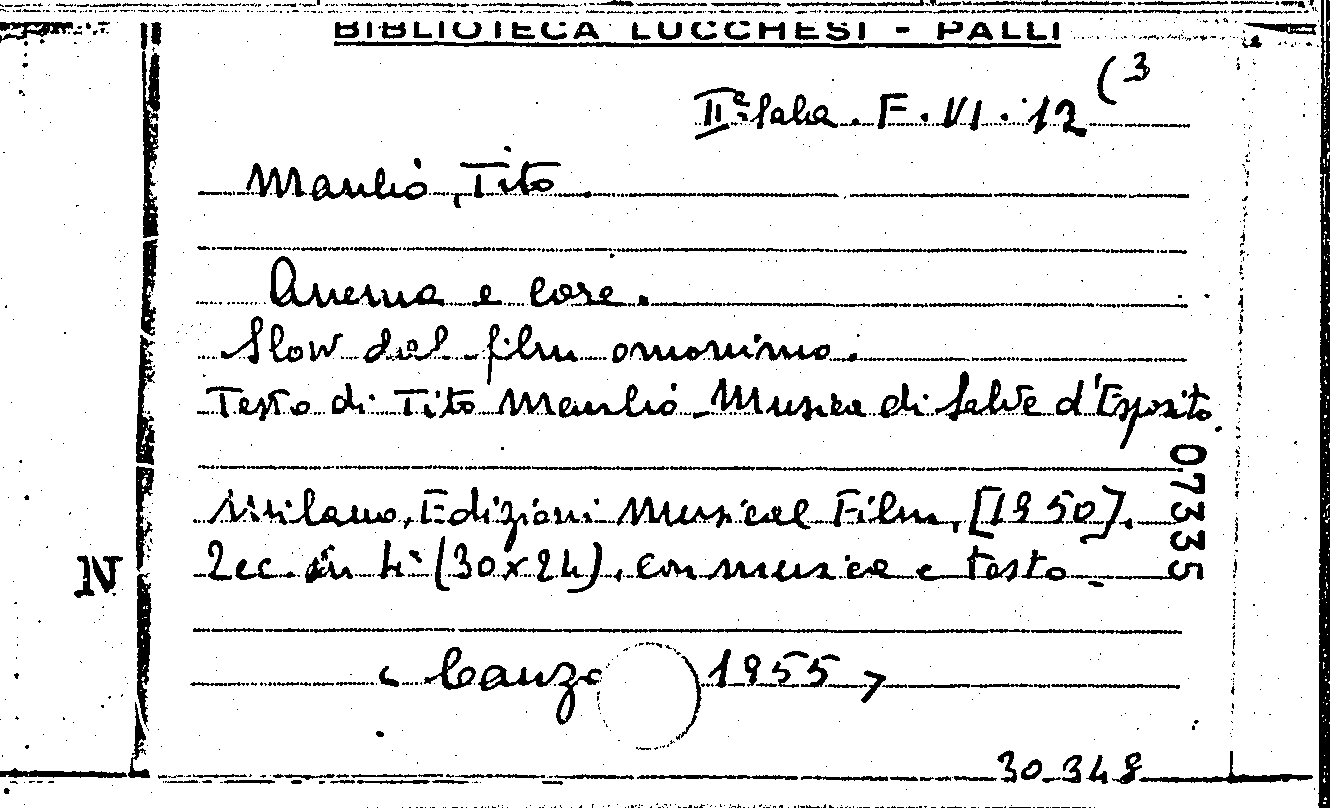 BIBLIOTECA LUCCHESI - PALLI
IIª Sala. F. VI. 12 (3
Manlio, Tito.
Anema e core.
Slow dal film omonimo.
Testo di Tito Manlio - Musica di Salve d'Esposito.
Milano, Edizioni Musical Film, [1950].
2 cc. in 4° (30x24), con musica e testo.
N
07335
< Canzo 1955 >
30348